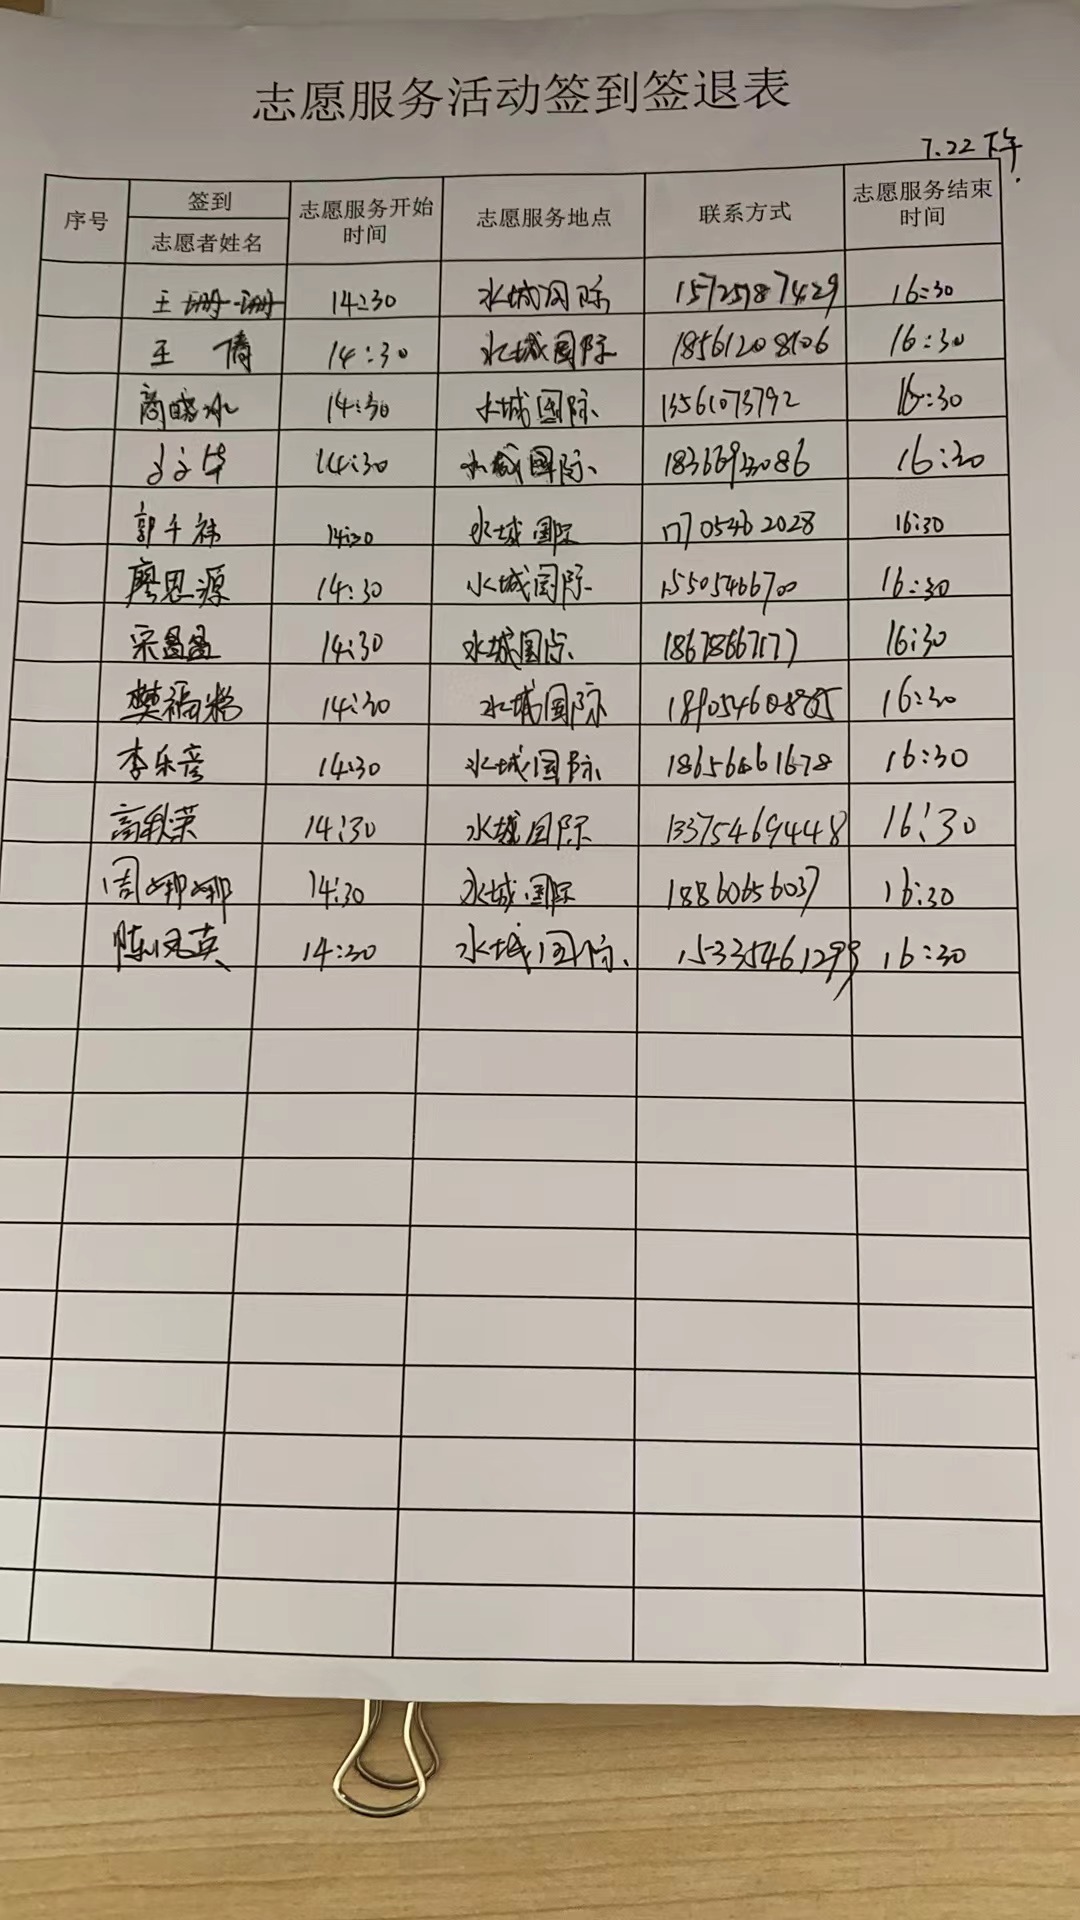 志愿服务活动签到签退表
7.22 下午
序号 签到 志愿者姓名 志愿服务开始时间 志愿服务地点 联系方式 志愿服务结束时间
王珊珊 14:30 水城国际 15725787429 16:30
王倩 14:30 水城国际 16:30
商晓冰 14:30 水城国际 13561073792 16:30
14:30 水城国际 16:30
郭千祎 14:30 水城国际 17705462028 16:30
廖思源 14:30 水城国际 15505466700 16:30
宋昌昌 14:30 水城国际 18678667177 16:30
樊福 14:30 水城国际 16:30
李乐彦 14:30 水城国际 18656461678 16:30
高秋荣 14:30 水城国际 13375469448 16:30
周娜娜 14:30 水城国际 18860656037 16:30
陈凤英 14:30 水城国际 15335461299 16:30